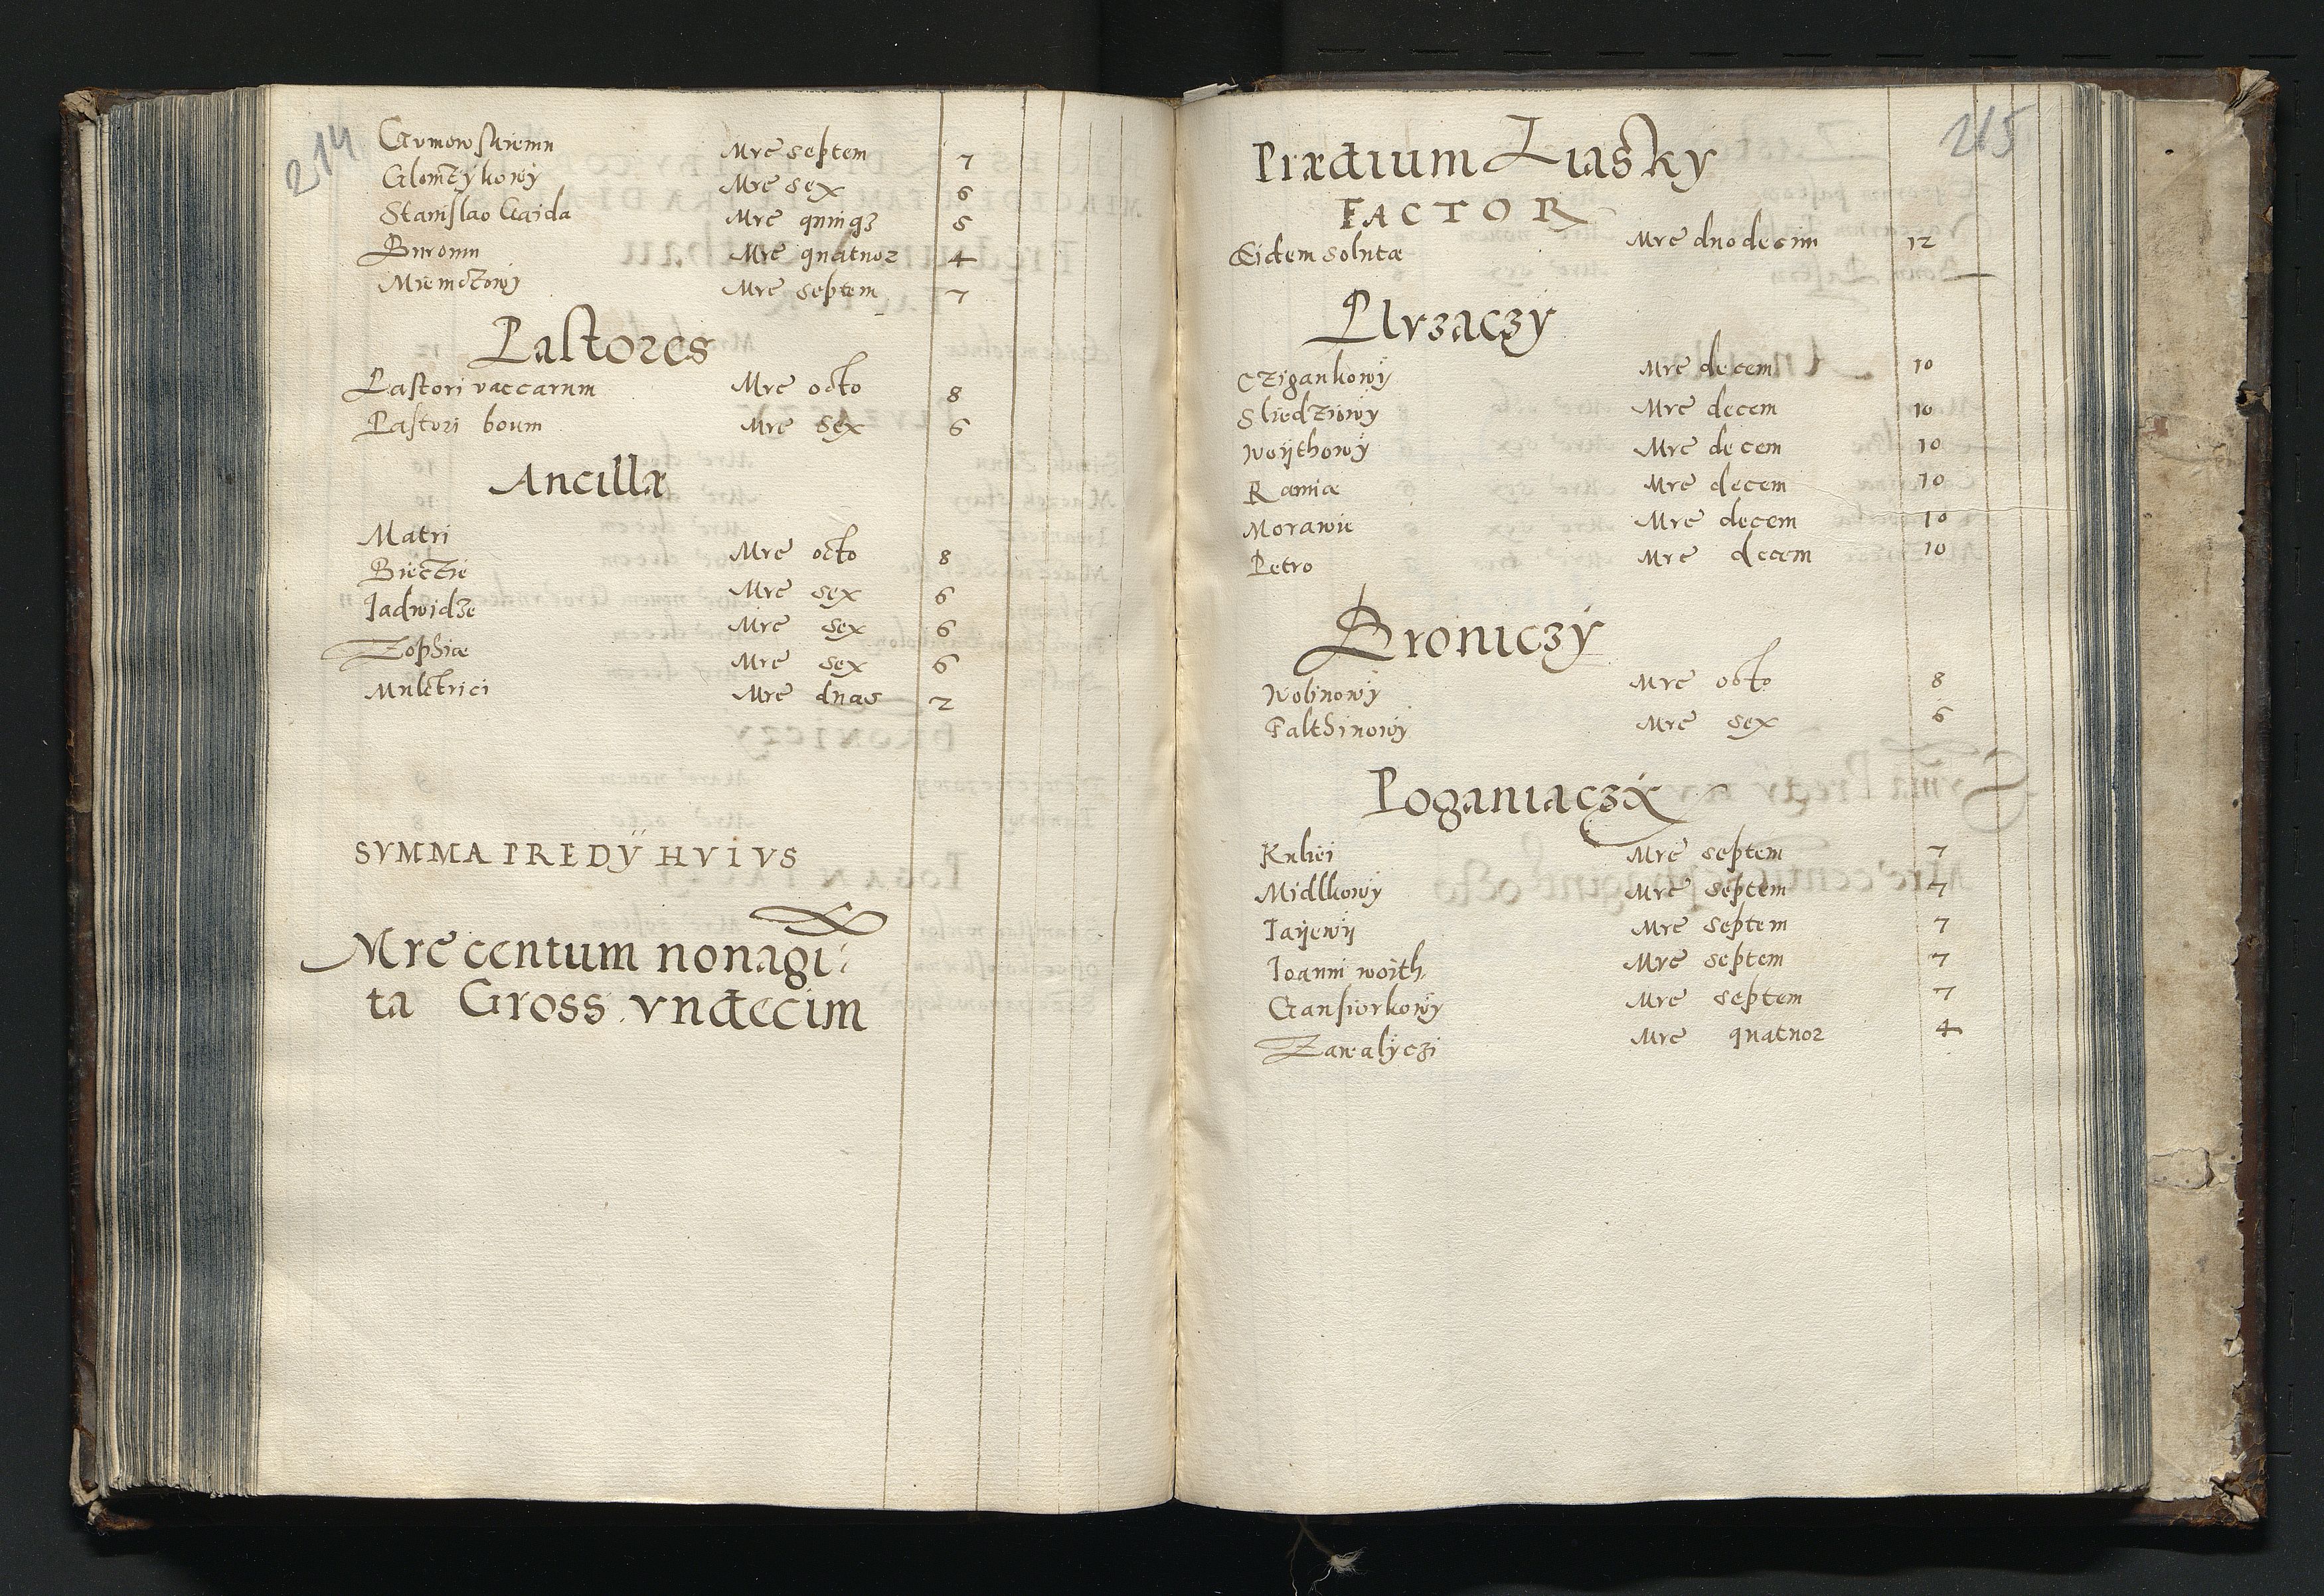 214
Grumowskiemu Mrc septem 7
Glomzÿkowÿ Mrc sex 6
Stanislao Gaida Mrc quinq3 5
Buronu Mrc quatuor 4
Mrc septem 7
Pastores
Pastori vaccarum Mrc octo 8
Pastori boum Mrc sex 6
Ancillæ
Matri Mrc octo 8
Biectie Mrc sex 6
Jadwidze Mrc sex 6
Zophiæ Mrc sex 6
Mulctrici Mrc duas 2
SVMMA PREDŸ HVIVS
Mrc centum nonagi:
ta Gross. vndecim
215
Prædium Liasky
FACTOR
Eidem solutæ Mrc duodecim 12
Plvzaczÿ
Cziganhowÿ Mrc decem 10
Sliedziowÿ Mrc decem 10
Woÿthowÿ Mrc decem 10
Ramiæ Mrc decem 10
Morawie Mrc decem 10
Petro Mrc decem 10
Broniczÿ
Wolinowÿ Mrc octo 8
Palthinowÿ Mrc sex 6
Poganiaczÿ
Kuliei Mrc septem 7
Midlkowÿ Mrc septem 7
Jaÿewÿ Mrc septem 7
Joanni woith Mrc septem 7
Gansiorkowÿ Mrc septem 7
Zawalÿczi Mrc quatuor 4